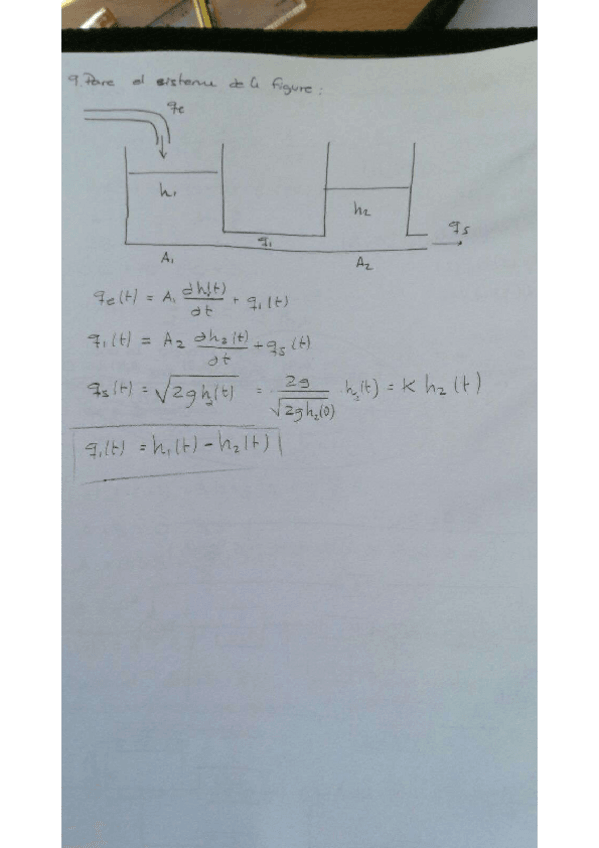 9. Para el sistema de la figura:
qe
h1
h2
q1
qs
A1
A2
qe(t) = A1 ∂h1(t)/∂t + q1(t)
q1(t) = A2 ∂h2(t)/∂t + qs(t)
qs(t) = √2gh2(t) = 2g/√2gh2(0) h2(t) = K h2(t)
q1(t) = h1(t) - h2(t)